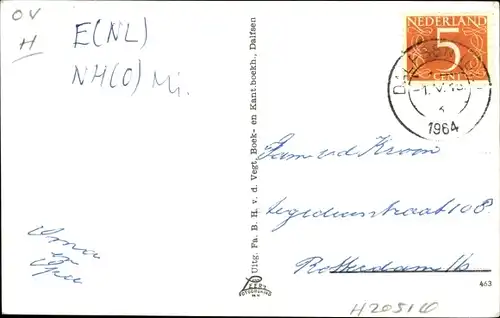 OV
H
E(NL)
NH(O) Mi.
NEDERLAND
5
CENT
DALFSEN
1964
Uitg. Fa. B. H. v. d. Vegt, Boek- en Kantboekh., Dalfsen
Fam v d Kroon
108
Rotterdam
Oma
en
Opa
463
H20516